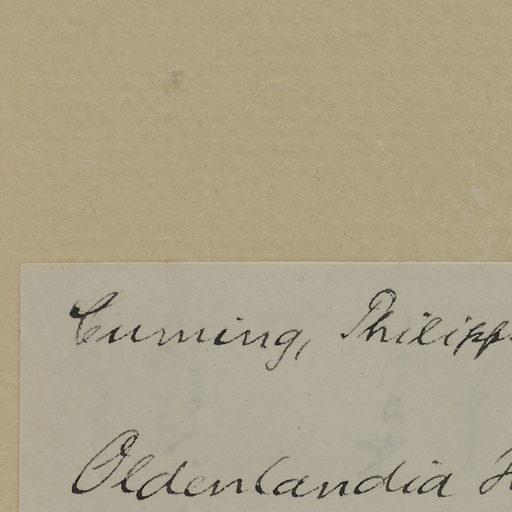 Cuming, Philipp
Oldenlandia